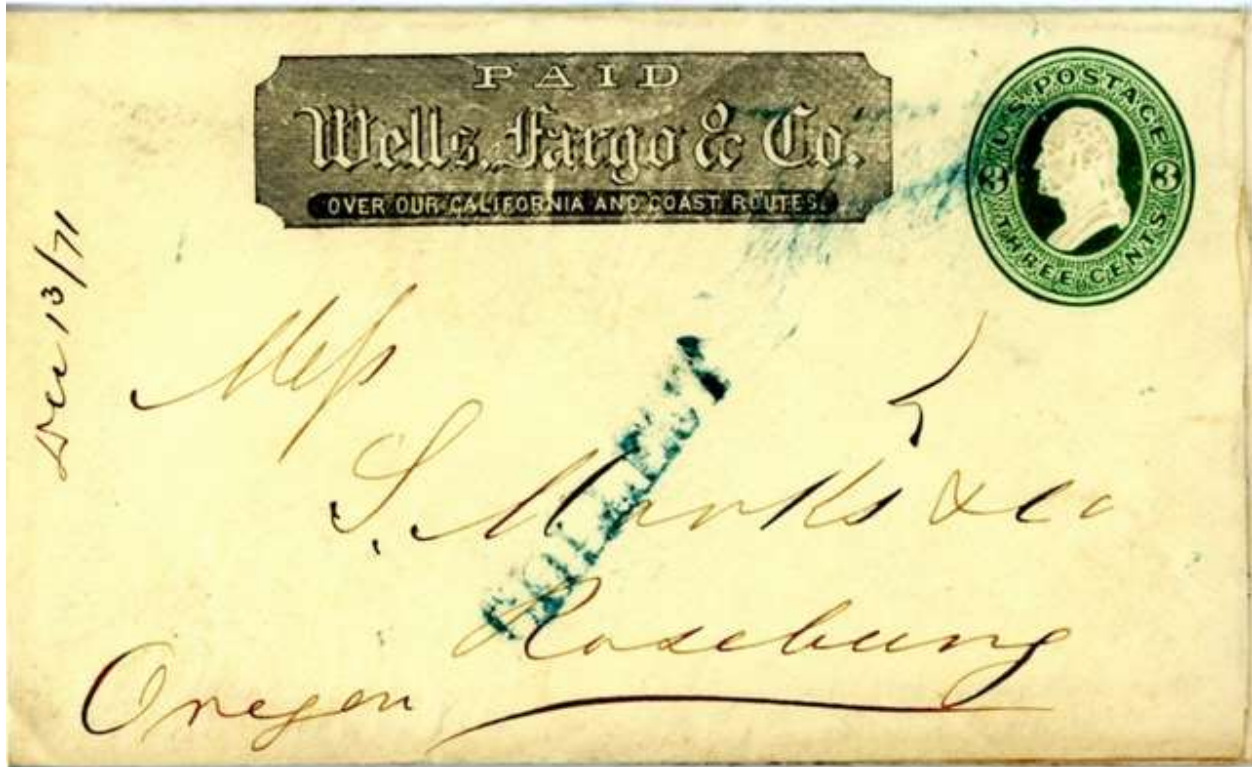 PAID
Wells, Fargo & Co.
OVER OUR CALIFORNIA AND COAST ROUTES.
U.S. POSTAGE
3 3
THREE CENTS
Dec 13/71
Mess
S. Marks & Co
COLLECT
Roseburg
Oregon